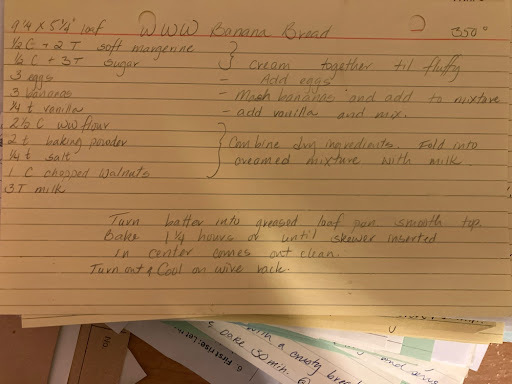 9 1/4 X 5 1/4" loaf WWW Banana Bread 350°
1/2 C + 2 T soft margerine
1/2 C + 3 T sugar } cream together til fluffy
3 eggs - Add eggs
3 bananas - Mash bananas and add to mixture
1/4 t vanilla - add vanilla and mix.
2 1/2 C ww flour
2 t baking powder } Combine dry ingredients. Fold into
1/4 t salt creamed mixture with milk.
1 C chopped walnuts
3 T milk
Turn batter into greased loaf pan smooth top.
Bake 1 1/4 hours or until skewer inserted
in center comes out clean.
Turn out & Cool on wire rack.
with a crusty
bake 30 min.
6 First rise: Let
No